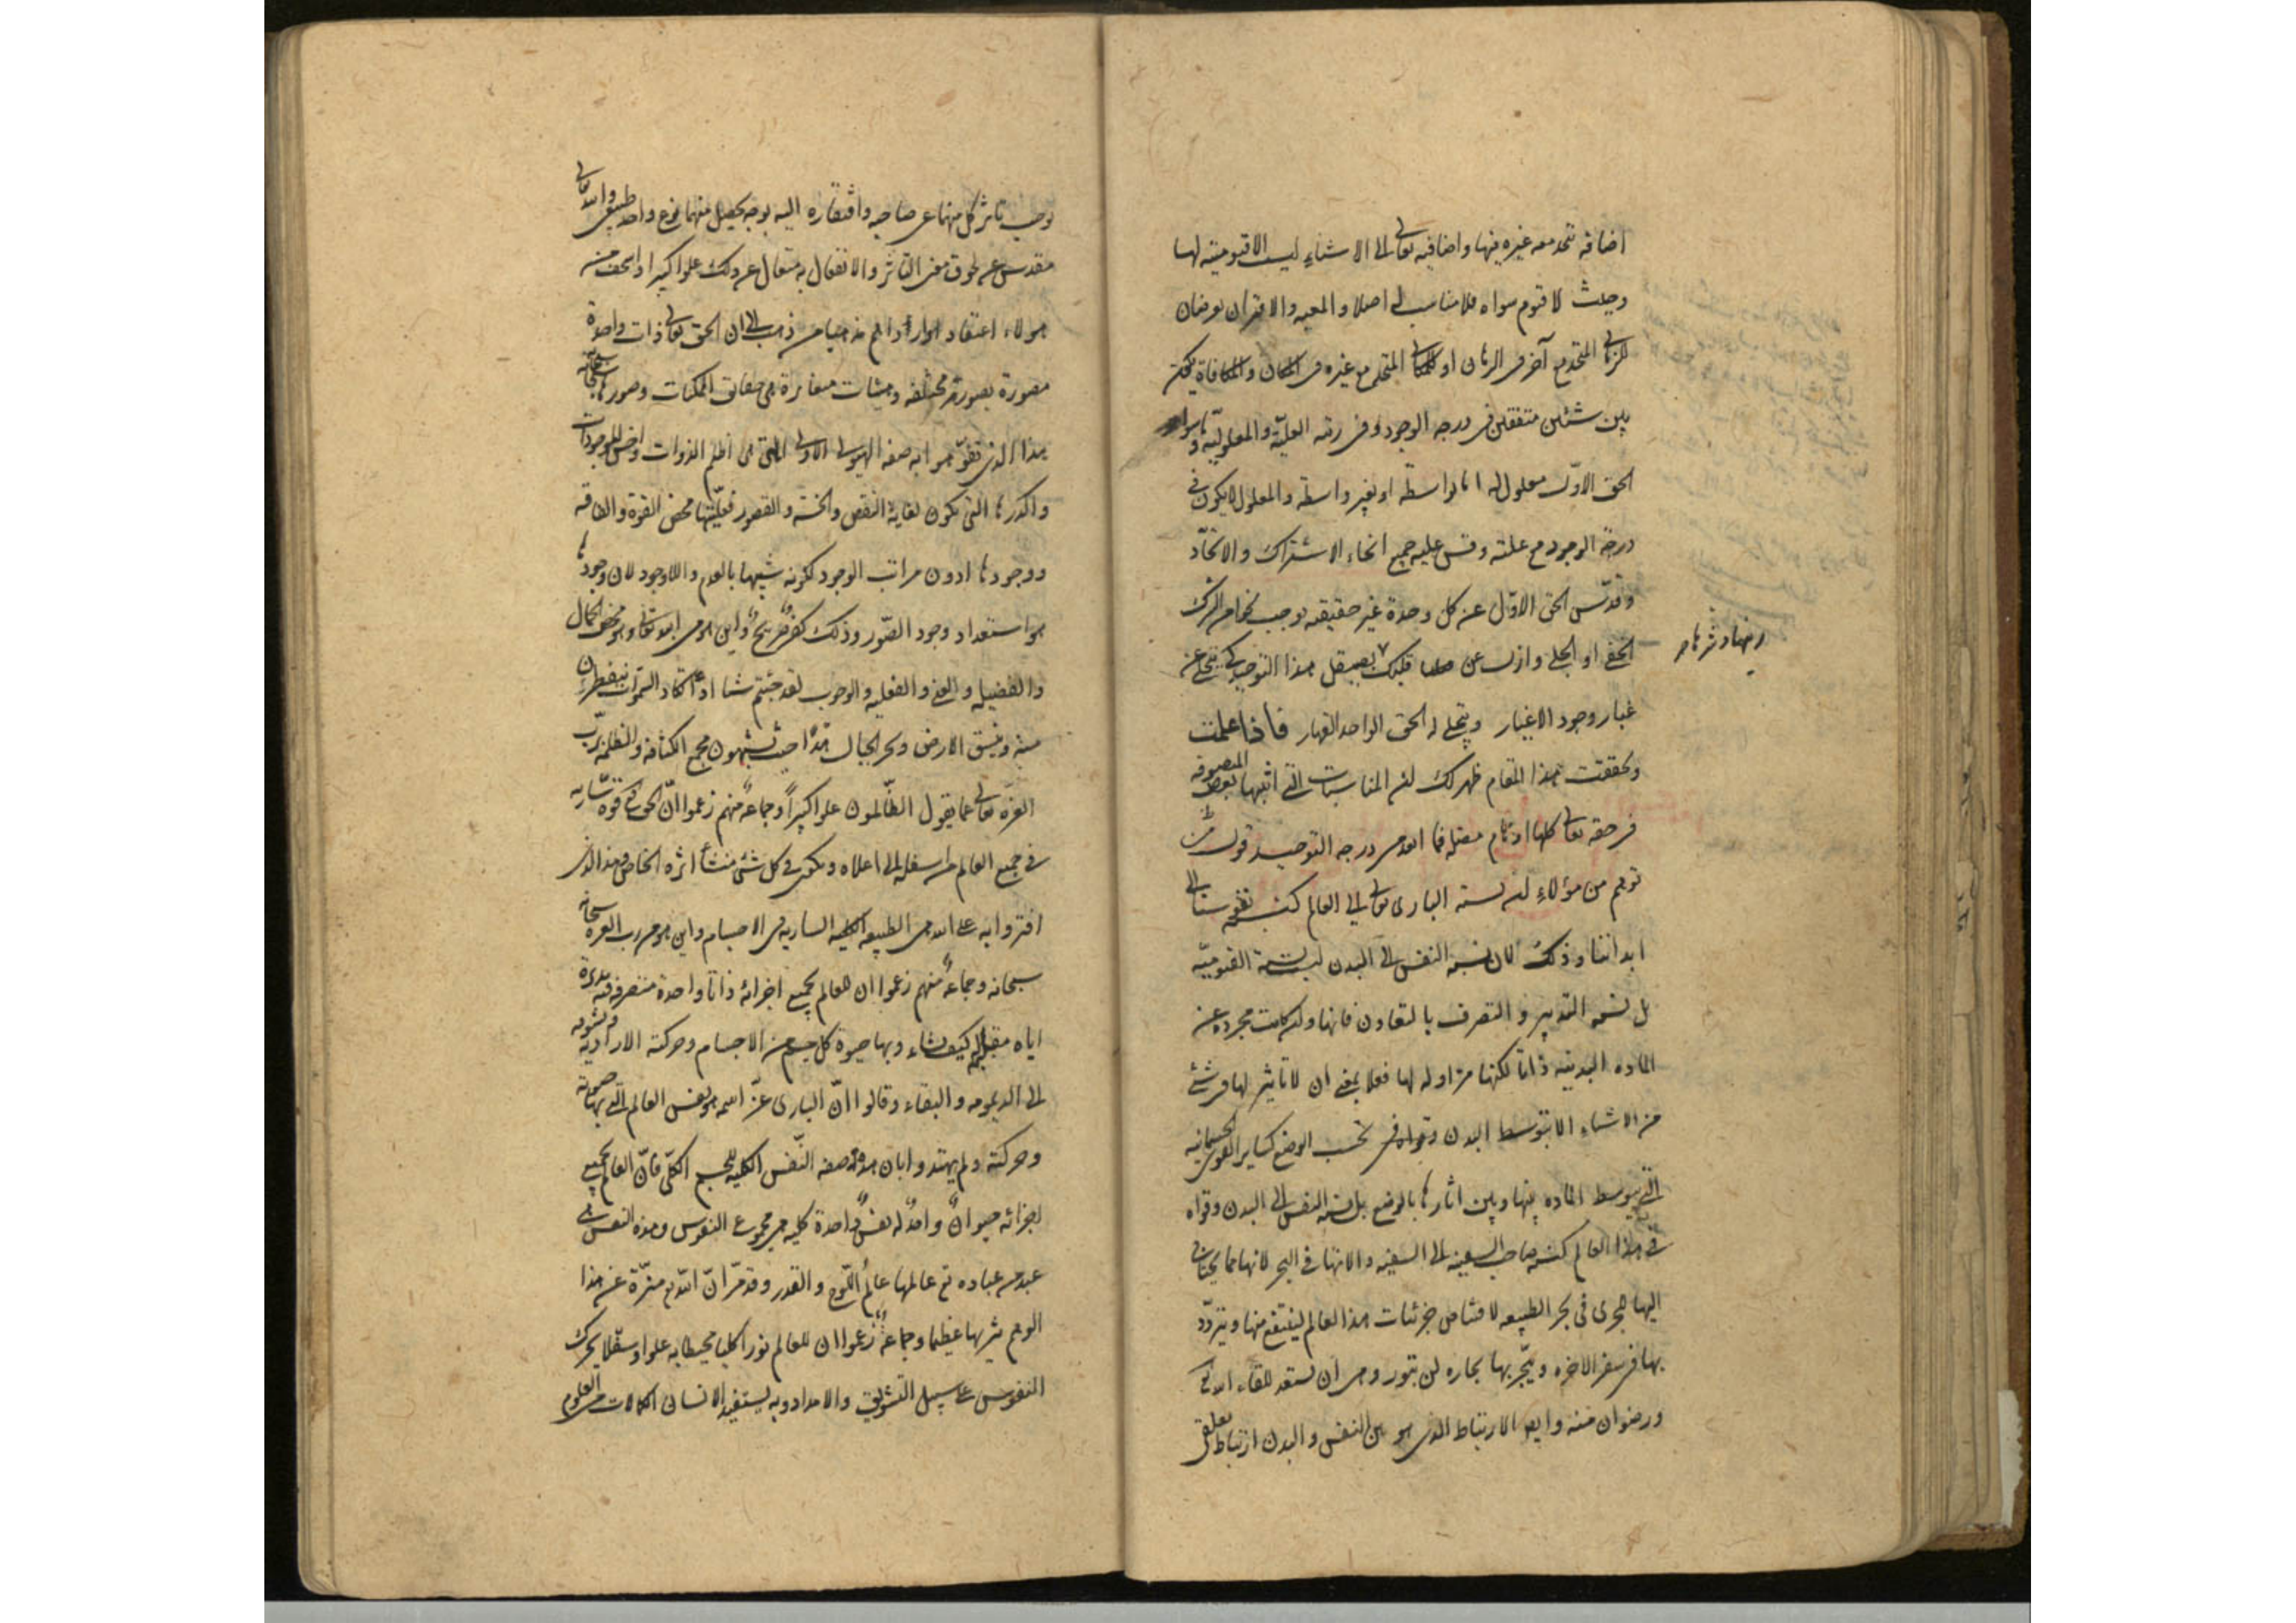 اضافة تتحد معه غيره فيها واضافيه تعالى الى الاشياء ليست الا قيومية لها
وحيث لا قيوم سواه فلا مناسب له اصلا والمعيه والاقتران يعرضان
للزمانى المتحد مع آخر فى الزمان او للمكانى المتحد مع غيره فى المكان والمكافاة يمكن
بين شيئين متفقين فى درجه الوجود وفى رتبه العلية والمعلولية وما سواه
الحق الاول معلول له اما بواسطة او بغير واسطة والمعلول لا يكون فى
درجة الوجود مع علته وقس عليه جميع انحاء الاشتراك والاتحاد
وقدّس الحق الاول عن كل وحدة غير حقيقيه يوجب نحوا من الشرك
الخفى او الجلى وازل عن قلبك بصيقل هذا التوحيد كى ينجلى عن
غبار وجود الاغيار ويتجلى له الحق الواحد القهار فاذا علمت
وتحققت هذا المقام ظهر لك ان المناسبات التى اثبتها بعض المتصوفة
فى حقه تعالى كلها اوهام مضلة فما ابعد من درجة التوحيد قول من
توهم من هؤلاء ان نسبة البارى تعالى الى العالم كنسبة نفوسنا الى
ابداننا وذلك لان نسبة النفس الى البدن ليست نسبة القيومية
بل نسبة التدبير والتصرف بالتعاون فانها وان كانت مجرده عن
الماده البدنيه ذاتا لكنها مزاوله لها فعلا بمعنى ان لا تاثير لها فى شئ
من الاشياء الا بتوسط البدن وقواه بحسب الوضع كساير القوى الجسمانيه
التى يتوسط الماده بينها وبين اثارها بالوضع بل نسبة النفس الى البدن وقواه
فى هذا العالم كنسبة صاحب السفينه الى السفينه والاتها فى البحر لانها مما يحتاج
اليها لتجرى فى بحر الطبيعه لاقتناص جزئيات هذا العالم لينتفع منها ويتزوّد
بها فى سفر الاخره ويتّجر بها تجاره لن تبور وهى ان تستعد للقاء الله تعالى
ورضوان منه وايضا الارتباط الذى هو بين النفس والبدن ارتباط تعلقى
يوجب تاثر كل منهما عن صاحبه وافتقاره اليه بوجه يحصل منهما نوع واحد طبيعى والله تعالى
مقدس عن لحوق معنى التاثر والانفعال به متعال عن ذلك علوا كبيرا واسخف من
هولاء اعتقادا وارأدالهم مذهبا من ذهب الى ان الحق تعالى ذات واحدة
مصورة بصور مختلفه وهيئات متغايرة هى حقائق الممكنات وصورها سبحانه
هذا الذى تفوّهوا به صفة الهيولى الاولى التى هى اظلم الذوات واخس الموجودات
واكدرها التى يكون لغاية النقص والخسّة والقصور فعليّتها محض القوة والفاقه
ووجودها ادون مراتب الوجود لكونه شبيها بالعدم واللاوجود لان وجودها
هو استعداد وجود الصّور وذلك كفر صريح واين هو من الله تعالى وهو محض الكمال
والفضيله والغنى والفعليه والوجوب لقد جئتم شيئا ادّا تكاد السموات يتفطرن
منه وتنشق الارض وتخر الجبال هدّا حيث تشبهون مجمع الكثافة والظلمة برب
العزة تعالى عما يقول الظالمون علوا كبيرا وجماعة منهم زعموا انّ الحق تعالى قوه ساريه
فى جميع العالم من اسفله الى اعلاه ويكون فى كل شئ منشأ اثره الخاص وهذا الذى
افتروا به على الله هى الطبيعه الكلية الساريه فى الاجسام واين هو من رب العزه سبحانه
سبحانه وجماعة منهم زعموا ان للعالم بجميع اجزائه ذاتا واحدة متصرفة فيه مديرة
اياه مقلبة له كيف تشاء وبها حيوة كل جسم من الاجسام وحركته الارادية وشوقه
الى الديمومه والبقاء وقالوا انّ البارى عزّ اسمه هو نفس العالم التى بها حيوته
وحركته ولم يهتدوا بان هذه صفه النّفس الكليه للجسم الكلى فانّ العالم بجميع
اجزائه حيوانٌ واحدٌ له نفسٌ واحدة كليه هى مجموع النفوس وهذه النفس هى
عبد من عباده تعالى عالمها عالم اللّوح والقدر وقد مرّ انّ الله تعالى منزّه عن هذا
الوهم تنزيها عظيما وجماعةٌ زعموا ان للعالم نورا كليا محيطا به علوا وسفلا يحرك
النفوس على سبيل التشويق والامداد وبه يستفيد الانسان الكمالات من العلوم